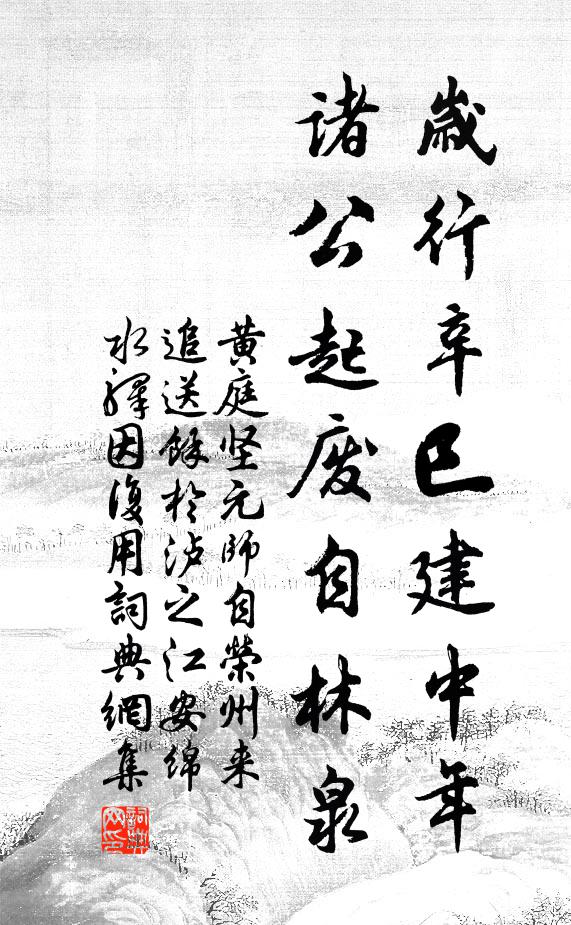 歲行辛巳建中年
諸公起廢自林泉
黄庭坚元師自榮州来
追送餘於泸之江安綿
水驛因復用詞典網集
詞典网印